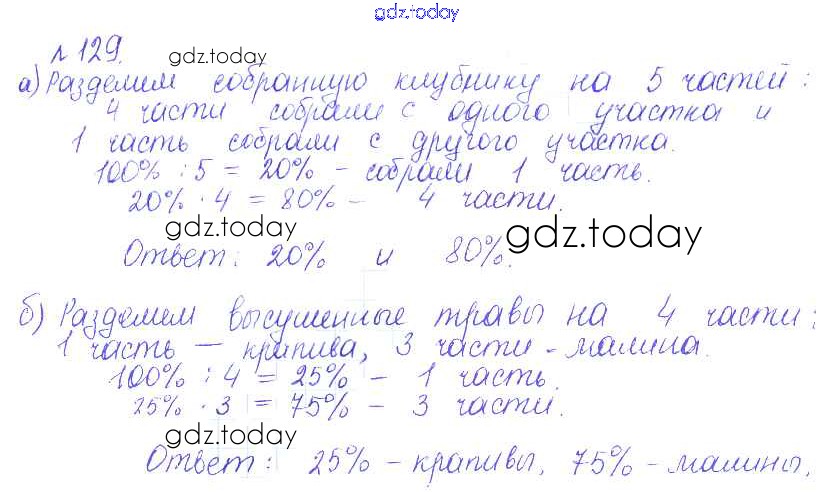 gdz.today
№ 129.
gdz.today
а) Разделим собранную клубнику на 5 частей:
4 части собрали с одного участка и
1 часть собрали с другого участка.
100% : 5 = 20% - собрали 1 часть.
20% · 4 = 80% - 4 части.
gdz.today
gdz.today
Ответ: 20% и 80%.
б) Разделим высушенные травы на 4 части:
1 часть — крапива, 3 части - малина.
100% : 4 = 25% - 1 часть.
25% · 3 = 75% - 3 части.
gdz.today
Ответ: 25% - крапивы, 75% - малины.